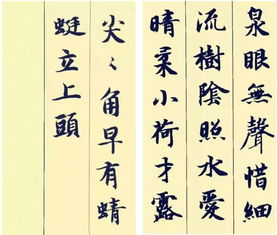 泉眼無聲惜細
流樹陰照水愛
晴柔小荷才露
尖〻角早有蜻
蜓立上頭